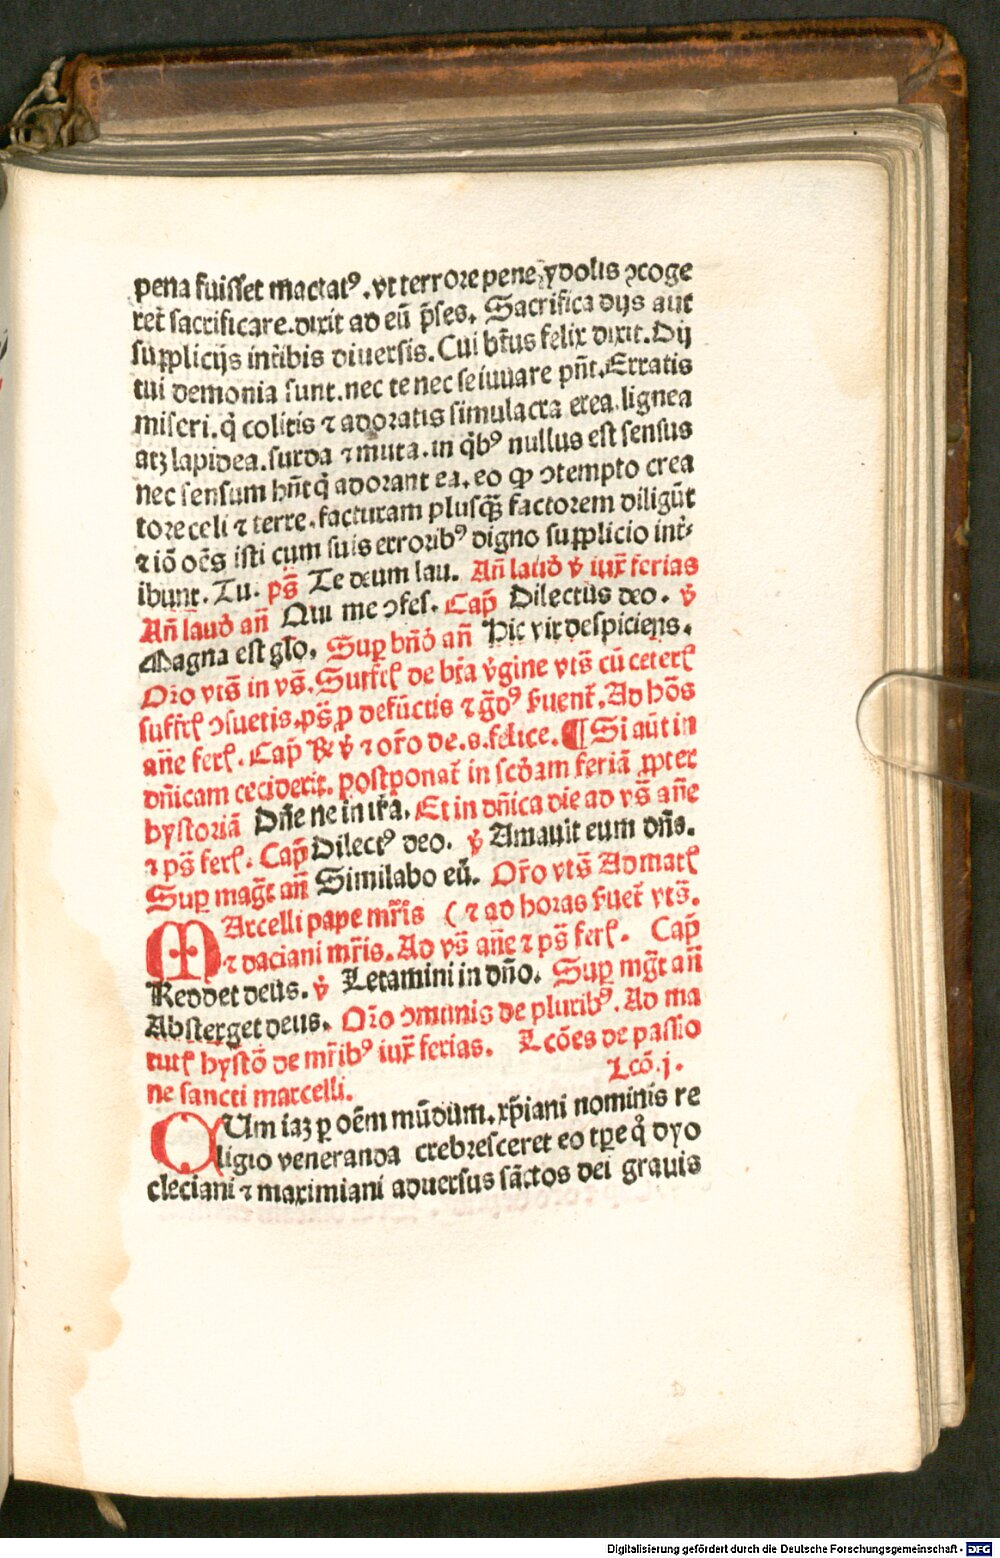 pena fuisset mactatꝰ. vt terrore pene ydolis ꝯcoge
ret sacrificare. dixit ad eū p̄ses. Sacrifica dijs aut
supplicijs int̄ibis diuersis. Cui bt̄us felix dixit. Dij
tui demonia sunt. nec te nec se iuuare pn̄t. Erratis
miseri. q̇ colitis ⁊ adoratis simulacra erea. lignea
atqꝫ lapidea. surda ⁊ muta. in q̇bꝰ nullus est sensus
nec sensum hn̄t q̇ adorant ea. eo ꝙ ꝯtempto crea
tore celi ⁊ terre. facturam plusq̄ꝫ factorem diligūt
⁊ iō oēs isti cum suis erroribꝰ digno supplicio int̄
ibunt. Tu. ps̄ Te deum lau. An̄ laud̄ ꝟ iux̄ ferias
An̄ laud̄ an̄ Qui me ꝯfes. Cap̄ Dilectus deo. ꝟ
Magna est glō. Suꝑ bn̄d̄ an̄ Hic vir despiciens.
Or̄o vts̄ in vs̄. Suffr̄ꝭ de bt̄a v̄gine vts̄ cū ceterꝭ
suffr̄ꝭ ꝯsuetis. ps̄ ꝓ defūctis ⁊ ḡdꝰ fuent̄. Ad hōs
an̄e ferꝭ. Cap̄ ℟ ꝟ ⁊ or̄o de .s. felice. ¶ Si aūt in
dn̄icam ceciderit. postponat̄ in scd̄am feriā ꝓpter
hystoriā Dn̄e ne in ira. Et in dn̄ica die ad vs̄ an̄e
⁊ ps̄ ferꝭ. Cap̄ Dilectꝰ deo. ꝟ Amauit eum dn̄s.
Suꝑ maḡt an̄ Similabo eū. Or̄o vts̄ Ad matꝭ
MArcelli pape mr̄is ( ⁊ ad horas fuet̄ vts̄.
⁊ daciani mr̄is. Ad vs̄ an̄e ⁊ ps̄ ferꝭ. Cap̄
Reddet deus. ꝟ Letamini in dn̄o. Suꝑ mḡt an̄
Absterget deus. Or̄o ꝯmunis de pluribꝰ. Ad ma
tutꝭ hystō de mr̄ibꝰ iux̄ ferias. Lcōes de passio
ne sancti marcelli. Lcō. j.
QUm iaꝫ ꝑ oēm mūdum. xp̄iani nominis re
ligio veneranda crebresceret eo tꝑe q̊ dyo
cleciani ⁊ maximiani aduersus sāctos dei grauis
Digitalisierung gefördert durch die Deutsche Forschungsgemeinschaft - DFG